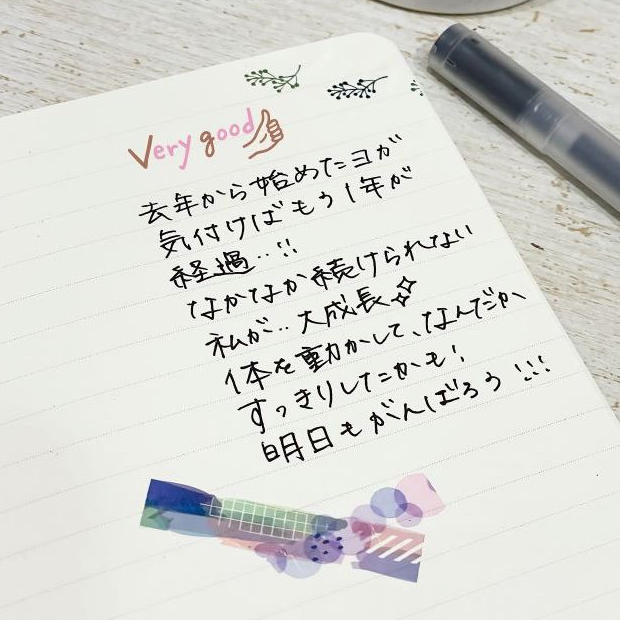 Very good
去年から始めたヨガ
気付けばもう1年が
経過‥!!
なかなか続けられない
私が‥大成長
体を動かして、なんだか、
すっきりしたかも!
明日もがんばろう!!!